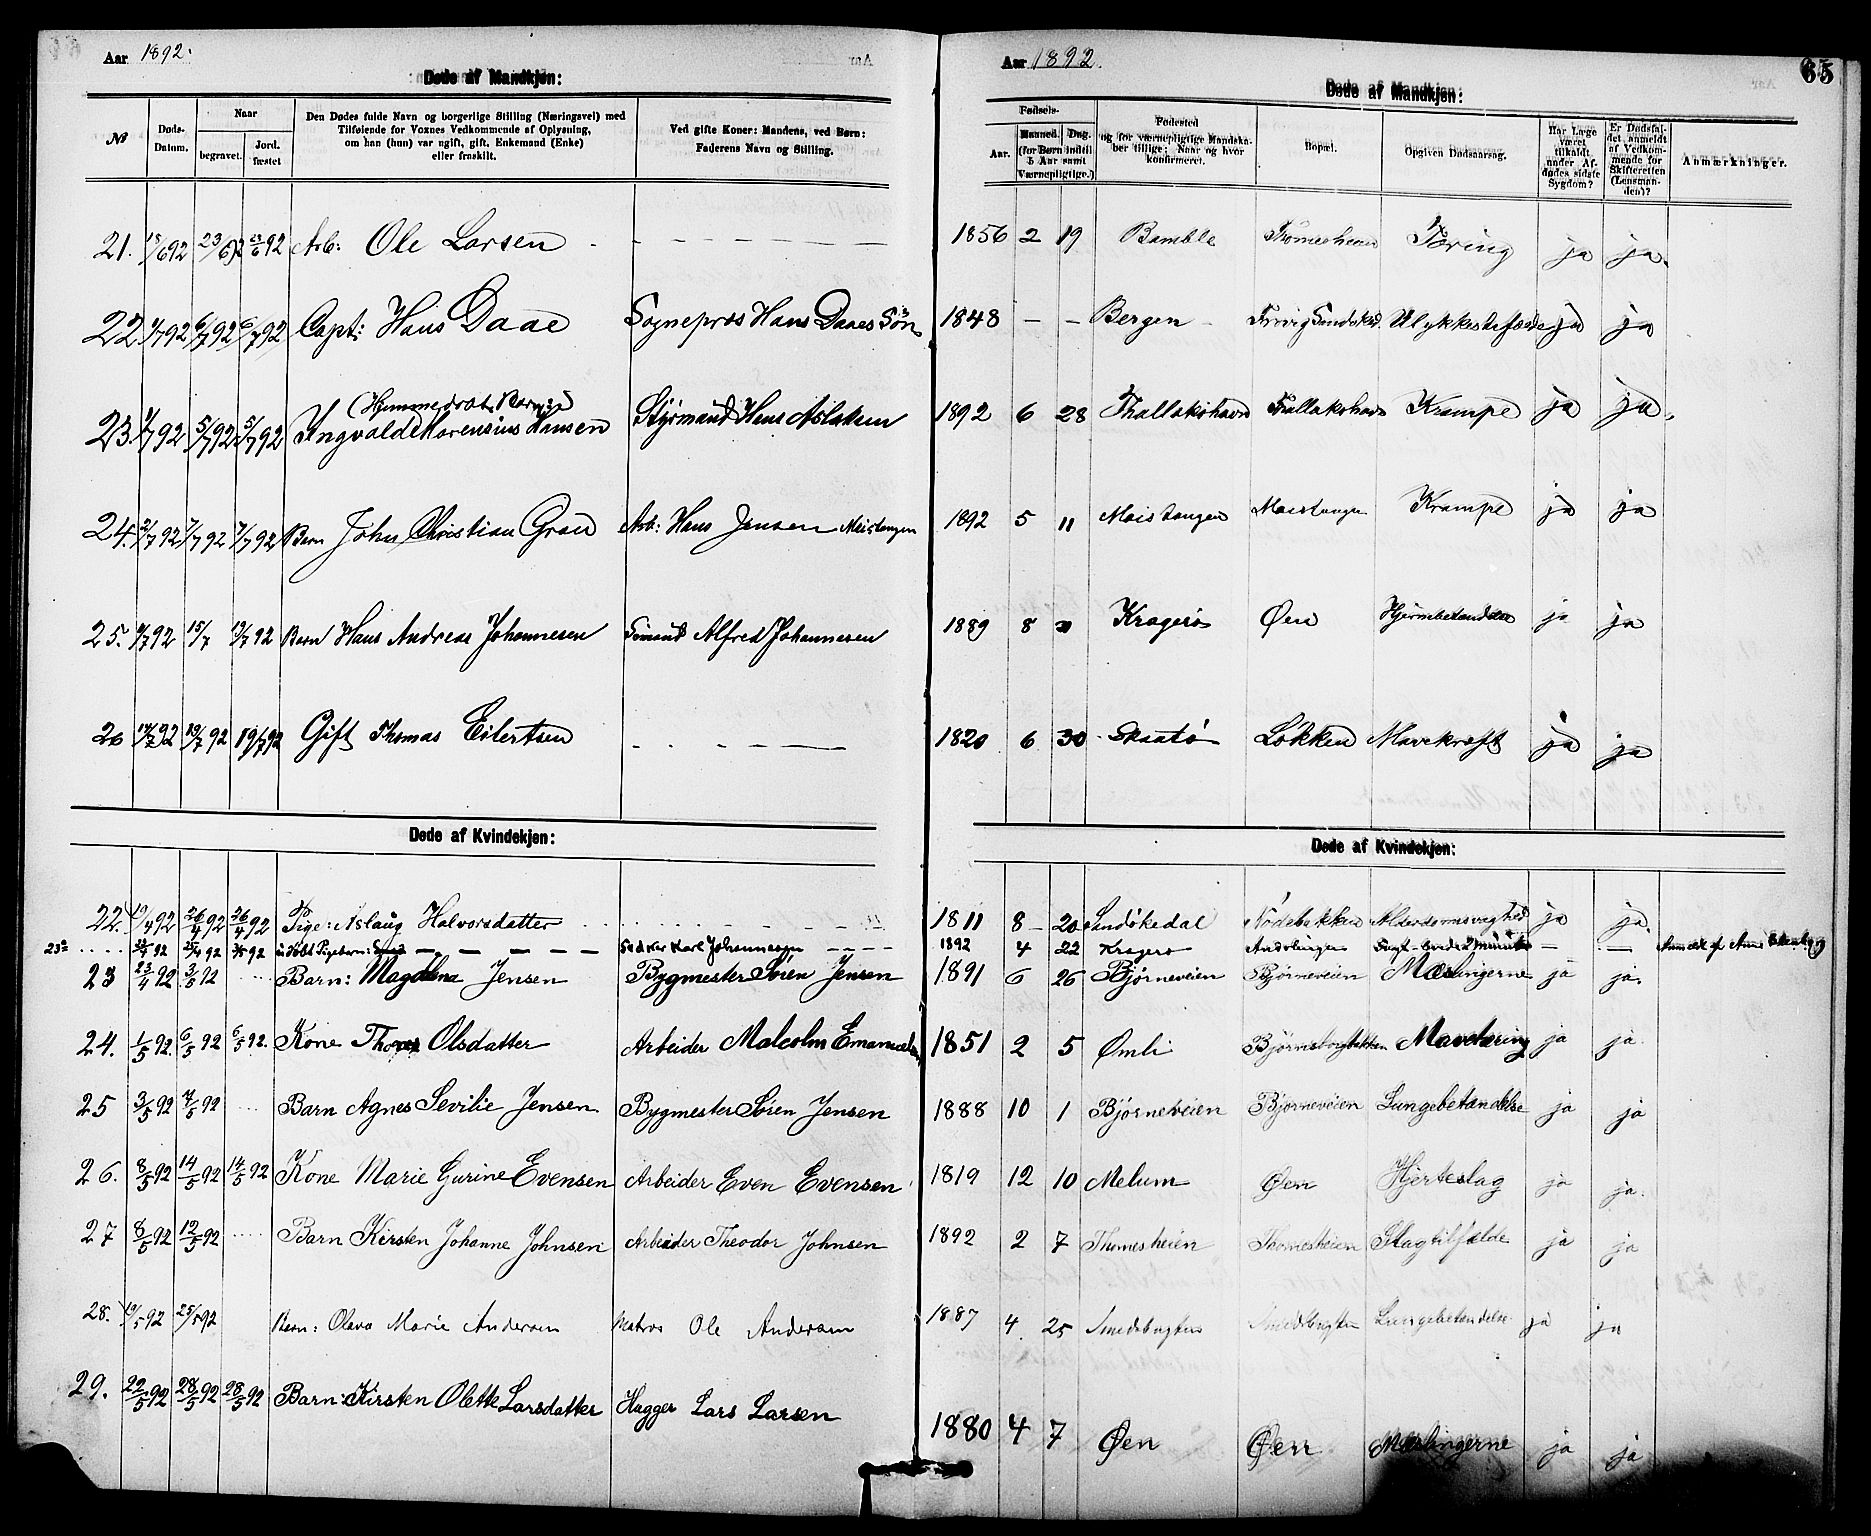 Aar 1892.
Døde af Mandkjøn:
№
Døds-Datum.
Naar
begravet.
Jord-fæstet
Den Dødes fulde Navn og borgerlige Stilling (Næringsvei) med
Tilføiende for Voxnes Vedkommende af Oplysning,
om han (hun) var ugift, gift, Enkemand (Enke)
eller fraskilt.
Ved gifte Koner: Mandens, ved Børn:
Faderens Navn og Stilling.
21. 18/6 92 23/6 92 23/6 92 Arb: Ole Larsen
22 1/7 92 6/7 92 6/7 92 Capt: Hans Daae Sognepræs Hans Daaes Søn
(Hjemmedøbt Barn:)
23. 1/7 92 5/7 92 5/7 92 Ingvald Lorensius Hansen Styrmand Hans Aslaksen
24. 2/7 92 7/7 92 7/7 92 Barn John Christian Grau Arb: Hans Jensen Maistangen
25. 11/7 92 15/7 19/7 92 Barn Hans Andreas Johannesen Sømand Alfred Johannesen
26 14/7 92 19/7 92 19/7 92 Gift Thomas Eilertsen
Døde af Kvindekjøn:
22. 19/4 92 26/4 92 26/4 92 Pige: Aslaug Halvorsdatter
23a 92 25/4 92 92 udøbt Pigebarn: Karl Johannesen
23 23/4 92 3/5 92 Barn: Magdalena Jensen Bygmester Søren Jensen
24. 1/5 92. 6/5 92 6/5 92. Kone Olsdatter Arbeider Malcolm Emanuelsen
25 3/5 92 7/5 92 Barn Agnes Sevilie Jensen Bygmester Søren Jensen
26. 8/5 92 14/5 92 14/5 92 Kone Marie Gurine Evensen Arbeider Even Evensen
27 8/5 92 12/5 92 Barn Kirsten Johanne Johnsen Arbeider Theodor Johnsen
28. 19/5 92 25/5 92 Barn: Olava Marie Andersen Matros Ole Andersen
29. 22/5 92 28/5 92 28/5 92 Barn: Kirsten Olette Larsdatter Hugger Lars Larsen
Aar 1892.
65
Døde af Mandkjøn:
Fødsels-
Aar.
Maaned. Dag.
(for Børn indtil
5 Aar samt
Værnepligtige.)
Fødested
og for værnepligtige Mandska-
ber tillige: Naar og hvor
konfirmeret.
Bopæl.
Opgiven Dødsaarsag.
Har Læge
været
tilkaldt
under Af-
dødes sidste
Sygdom?
Er Dødsfal-
det anmeldt
af Vedkom-
mende for
Skifteretten
(Lensman-
den)?
Anmærkninger.
1856 2 19 Bamble Thomesheien Tæring ja ja.
1848 — — Bergen Sandøked. Ulykkestilfælde ja ja
1892 6 28 Thallakshavn Thallakshavn Krampe ja ja.
1892 5 11 Maistangen Maistangen Krampe ja ja
1889 8 Kragerø Øen Hjernebetændelse ja ja
1820 6 30 Skaatø Løkken Mavekræft ja ja
Døde af Kvindekjøn:
1811 8 20 Sandøkedal Nødebakken Alderdomssvaghed ja ja.
1892 4 22 Kragerø — —
1891 6 26 Bjørneveien Bjørneveien Mæslingerne ja ja.
1851 2 5 Ømli Bjørnsborgbakken Mavetæring ja ja
1888 10 1 Bjørneveien Bjørneveien Lungebetændelse ja ja
1819 12 10 Melum Øen Hjerteslag ja ja.
1892 2 7 Thomesheien Thomesheien Slagtilfælde ja ja
1887 4 25 Smedsbugten Smedsbugten Lungebetændelse ja ja
1880 4 7 Øen Øen Mæslingerne ja ja